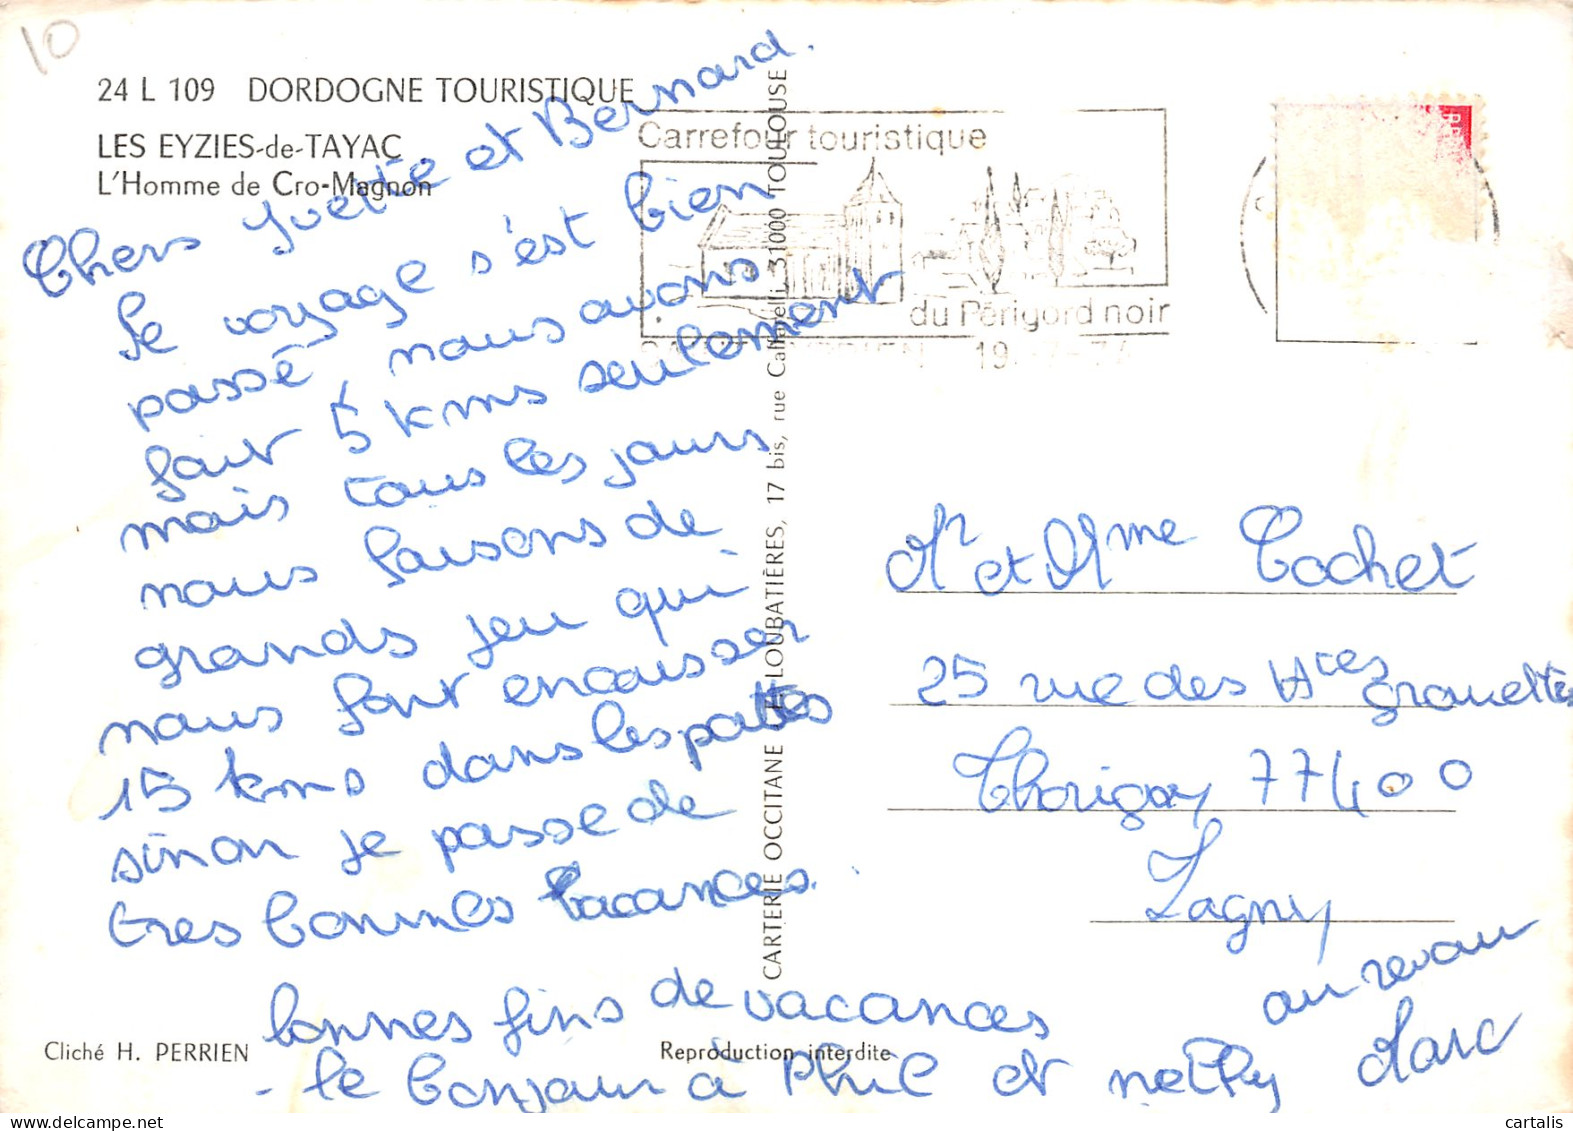 10
24 L 109 DORDOGNE TOURISTIQUE
LES EYZIES-de-TAYAC
L'Homme de Cro-Magnon
Chers Yvette et Bernard.
le voyage s'est bien
passé, nous avons
fait 5 kms seulement
mais tous les jours
nous faisons de
grands jeu qui
nous font encaisser
15 kms dans les pattes
sinon je passe de
tres bonnes vacances.
bonnes fins de vacances
- le bonjour à Phil et netty
au revoir
Marc
Cliché H. PERRIEN
Reproduction interdite
CARTERIE OCCITANE LOUBATIÈRES, 17 bis, rue Caffarelli, 31000 TOULOUSE
Carrefour touristique
du Périgord noir
Mr et Mme Cochet
25 rue des Htes grouettes
Thorigny 77400
Lagny
cartalis
www.delcampe.net